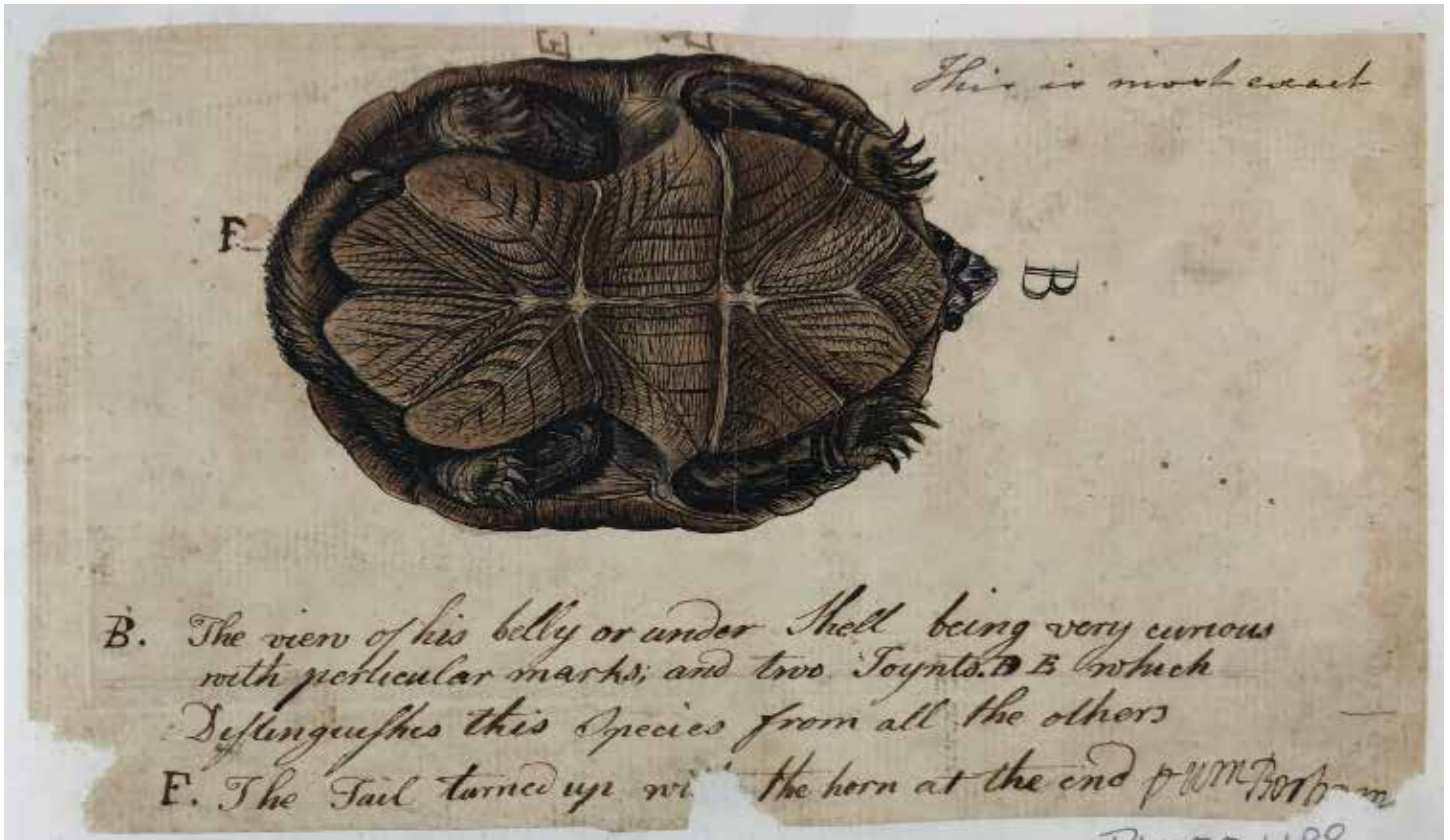 E
This is most exact
F
B
B. The view of his belly or under Shell being very curious
with perticular marks; and two Joynts. D E which
Distinguishes this Species from all the others
F. The Tail turned up wi the horn at the end p Wm Bartram